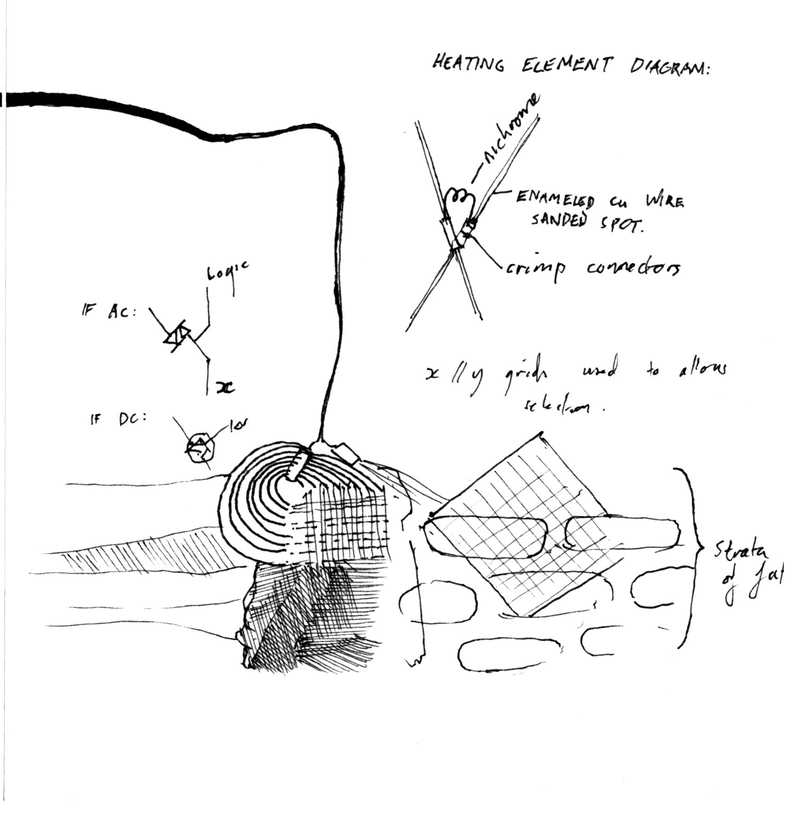 HEATING ELEMENT DIAGRAM:
nichrome
ENAMELED Cu WIRE
SANDED SPOT.
crimp connectors
Logic
IF AC:
x
IF DC:
x // y grids used to allow
selection.
Strata
of fat